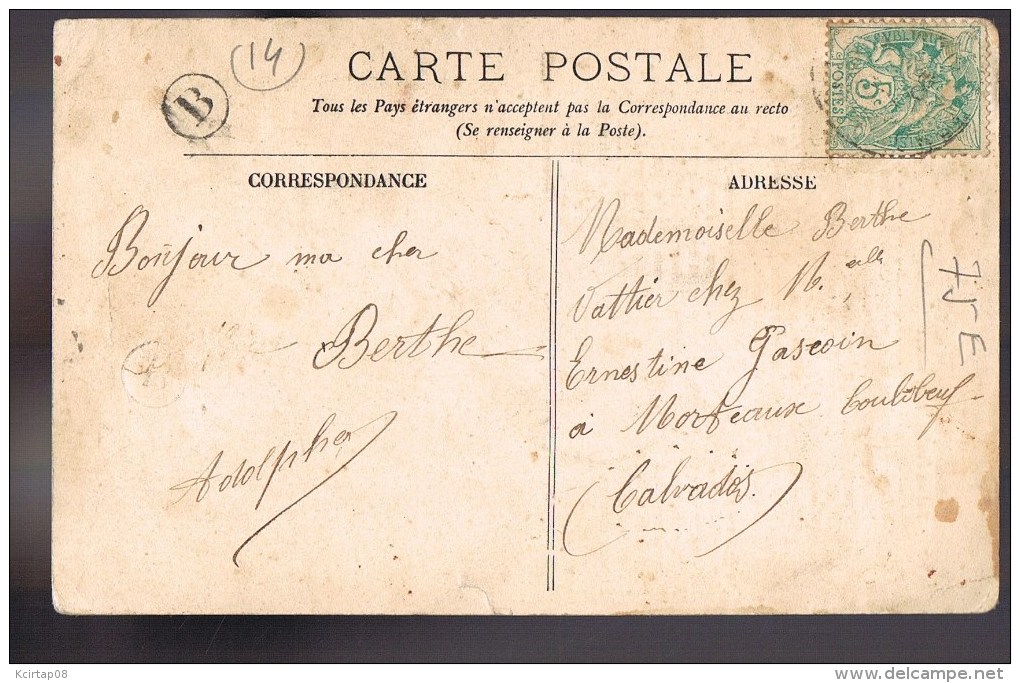 (14)
B
CARTE POSTALE
Tous les Pays étrangers n'acceptent pas la Correspondance au recto
(Se renseigner à la Poste).
5c
POSTES
CORRESPONDANCE
Bonjour ma cher
Berthe
Adolphe
ADRESSE
Mademoiselle Berthe
Vattier chez M. elle
Ernestine Gascoin
à Morteaux Coulibeuf
Calvados.
75E
Kcirtap08
www.delcampe.net